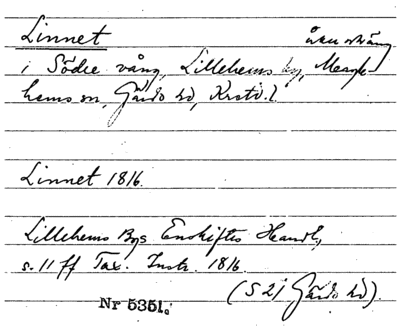 Linnet
i Södre vång, Lillehems by, Maegle-
hems sn, Gärds hd, Krstd. l.
Linnet 1816.
Lillehems Bys Enskiftes Handl,
s. 11 ff Tax. Instr. 1816.
(S 21 Gärds hd).
Nr 5351.